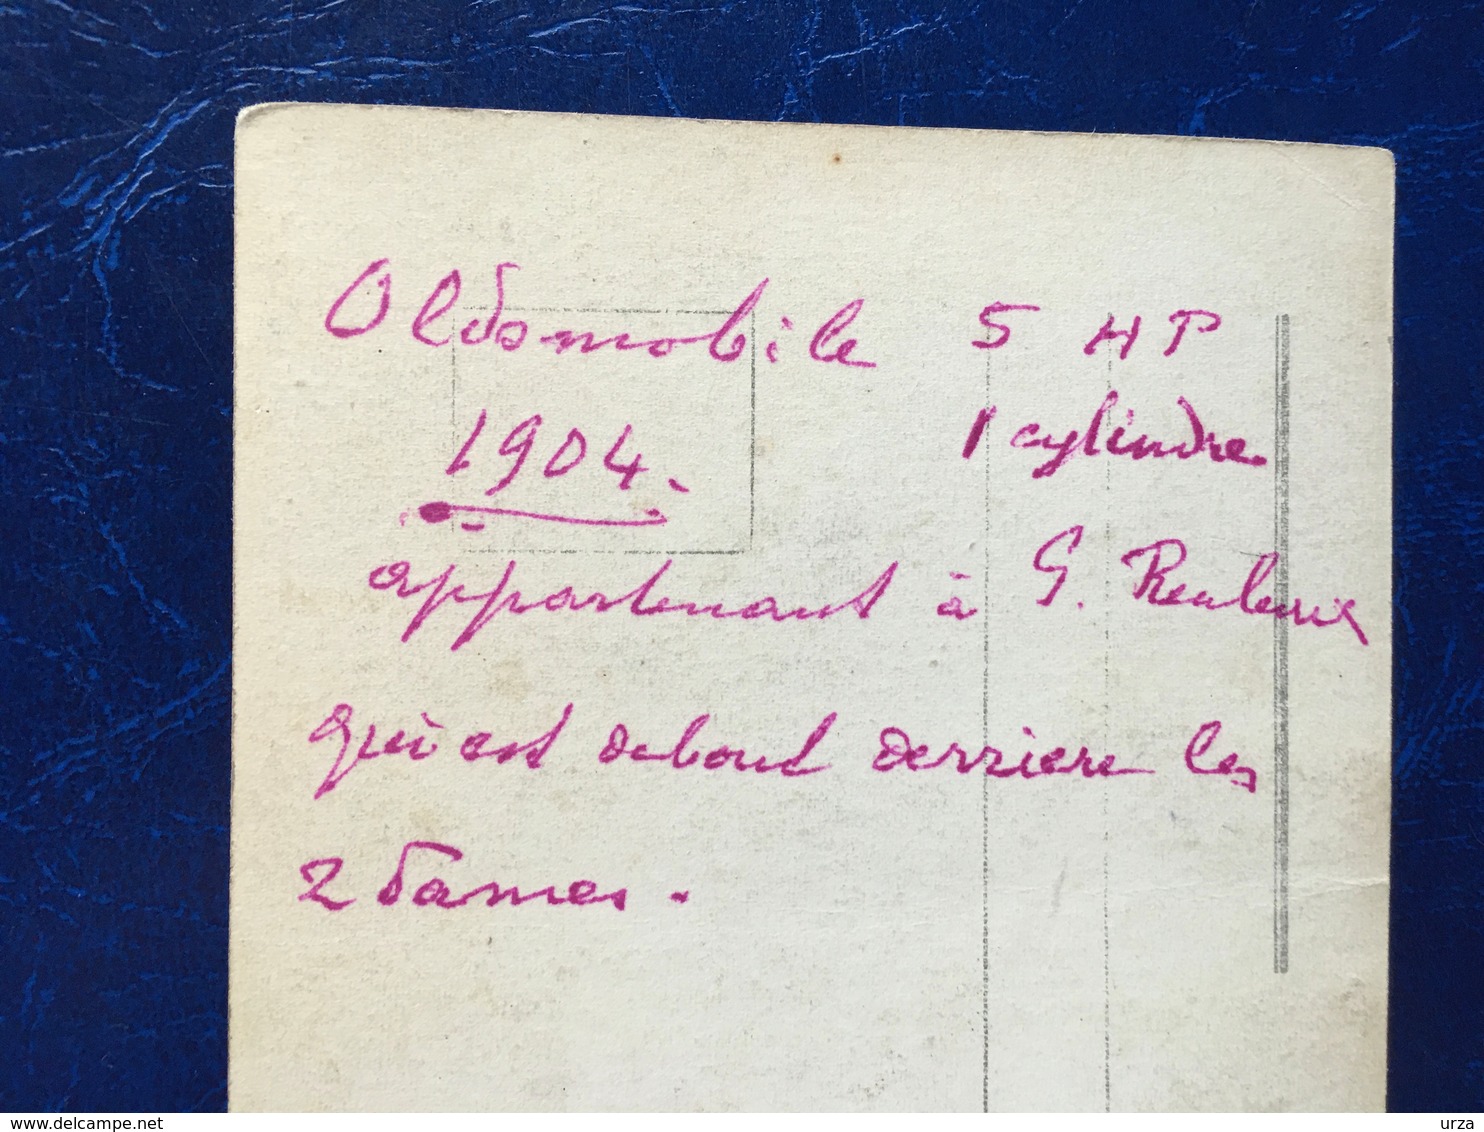 Oldsmobile 5 HP
1904. 1 cylindre
appartenant à G.
qui est debout derriere les
2 dames.
delcampe.net
urza